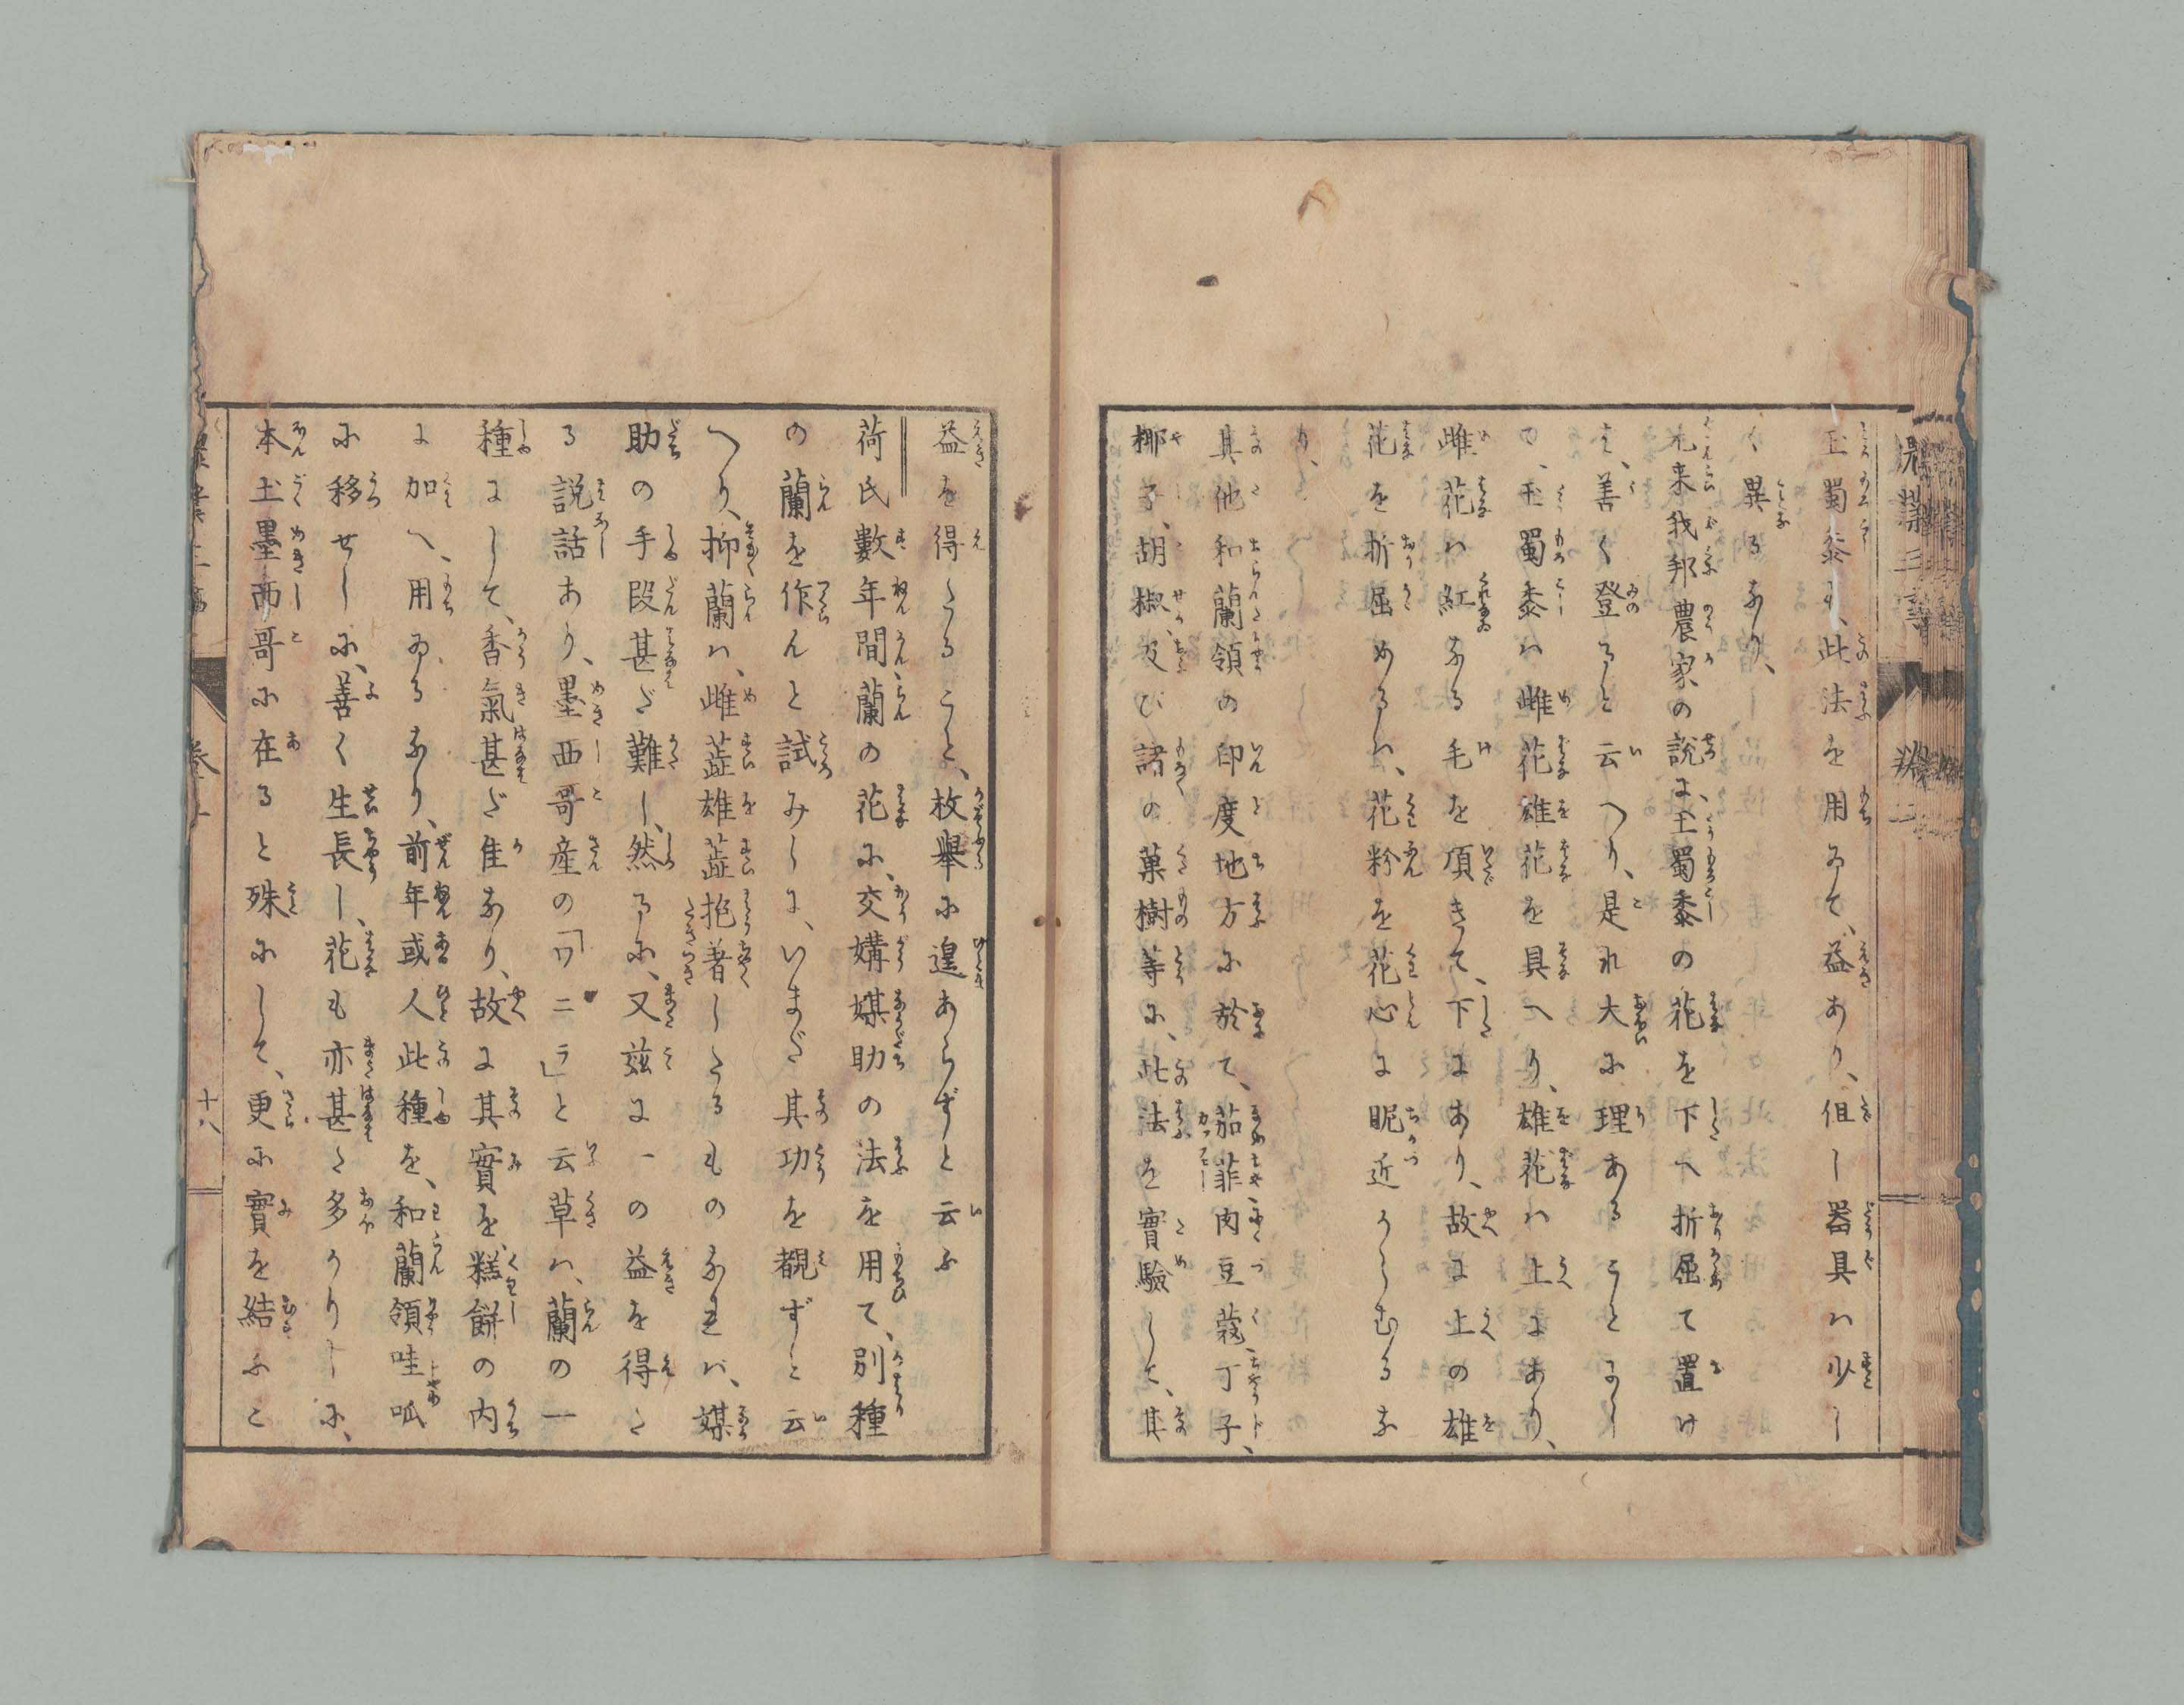 玉蜀黍も、此法を用ゐて、益あり、但し器具ハ少し
く異るなり、
元来我邦農家の説に、玉蜀黍の花を下へ折屈て置け
ば、善く登ると云へり、是れ大に理あることにし
て、玉蜀黍ハ雌花雄花を具へり、雄花ハ上にあり、
雌花ハ紅なる毛を頂きて、下にあり、故に上の雄
花を折屈めるハ、花粉を花心に昵近からしむるな
り、
其他和蘭領の印度地方に於て、茄菲肉豆蔲丁子、
椰子、胡椒、及び諸の菓樹等に、此法を實驗して、其
益を得たること、枚擧に遑あらずと云ふ
荷氏數年間、蘭の花に、交媾媒助の法を用て、別種
の蘭を作んと試みしに、いまだ其功を覩ずと云
へり、抑蘭ハ、雌蕋雄蕋抱著したるものなれバ、媒
助の手段甚だ難し、然るに、又玆に一の益を得た
る説話あり、墨西哥産の「ワニラ」と云草ハ、蘭の一
種にして、香氣甚だ佳なり、故に其實を、糕餅の内
に加へ、用ゐるなり、前年或人此種を、和蘭領哇呱
に移せしに、善く生長し、花も亦甚た多かりしに、
本土墨西哥に在ると殊にして、更に實を結ふこ
十八